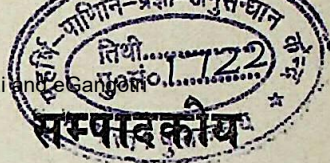 महर्षि-पाणिनि-प्रज्ञा अनुसन्धान केन्द्र
तिथी............
1722
i and eGangotri
सम्पादकीय